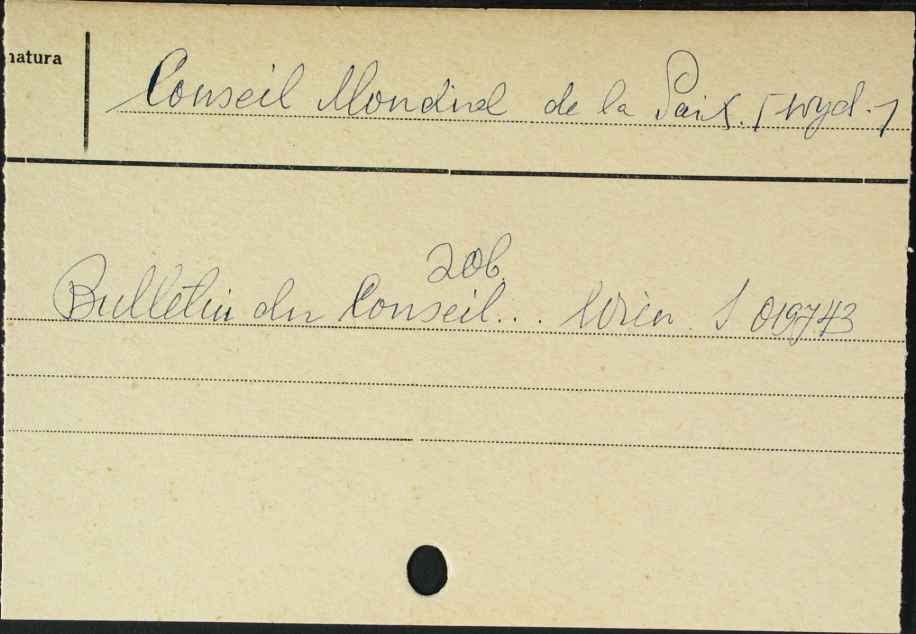 natura
Conseil Mondial de la Paix. [wyd.]
zob.
Bulletin du Conseil... Wien. S 019743